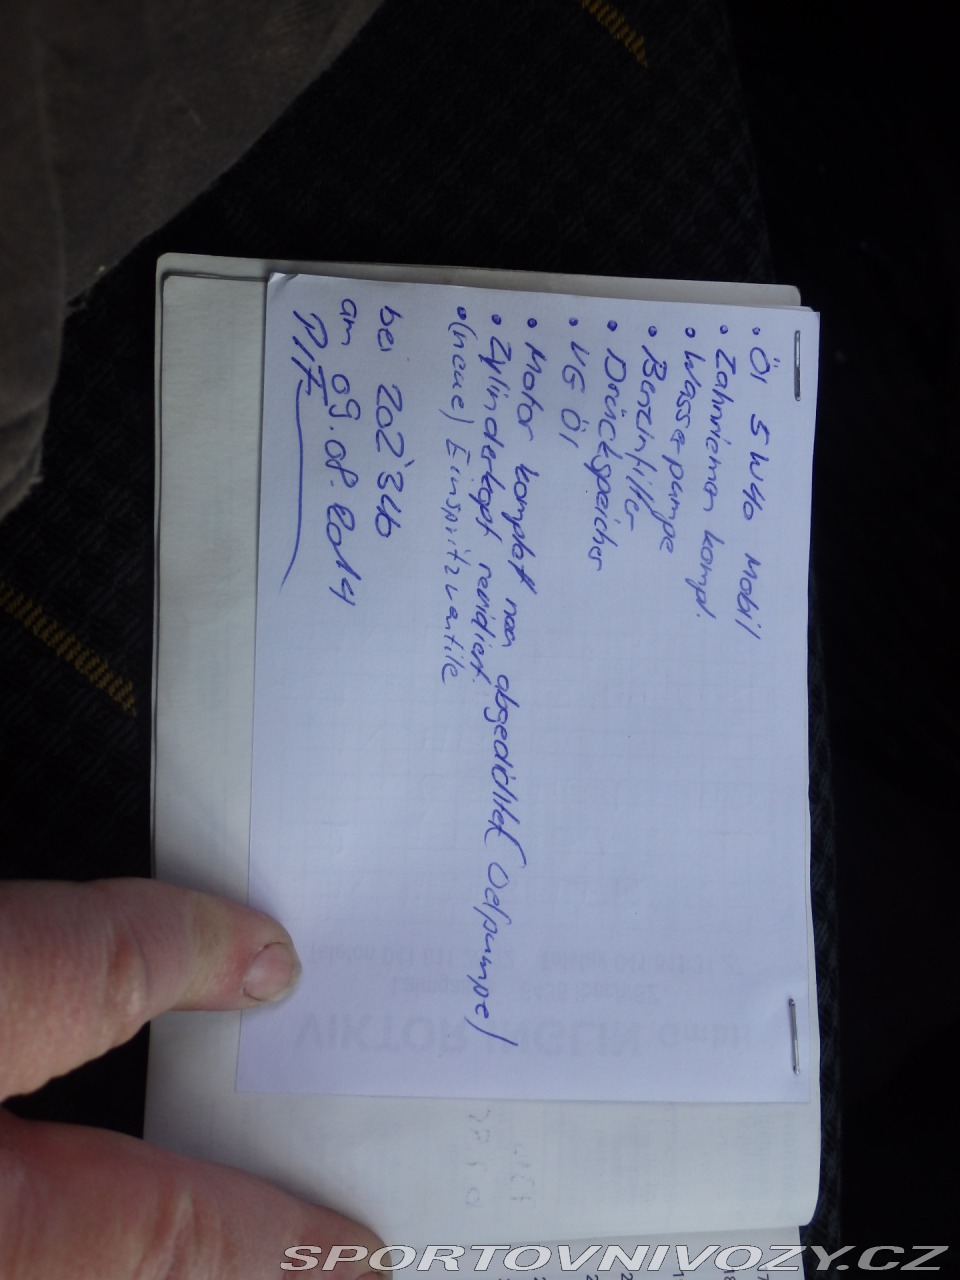 • Öl 5W40 Mobil
• Zahnriemen kompl.
• Wasserpumpe
• Benzinfilter
• Drückspeicher
• VG Öl
• Motor komplett neu abgedichtet (Oelpumpe)
• Zylinderkopf revidiert.
• (neue) Einspritzventile
bei 202'346
am 09.08.2014
VIKTOR INGLIN GmbH
SPORTOVNIVOZY.CZ